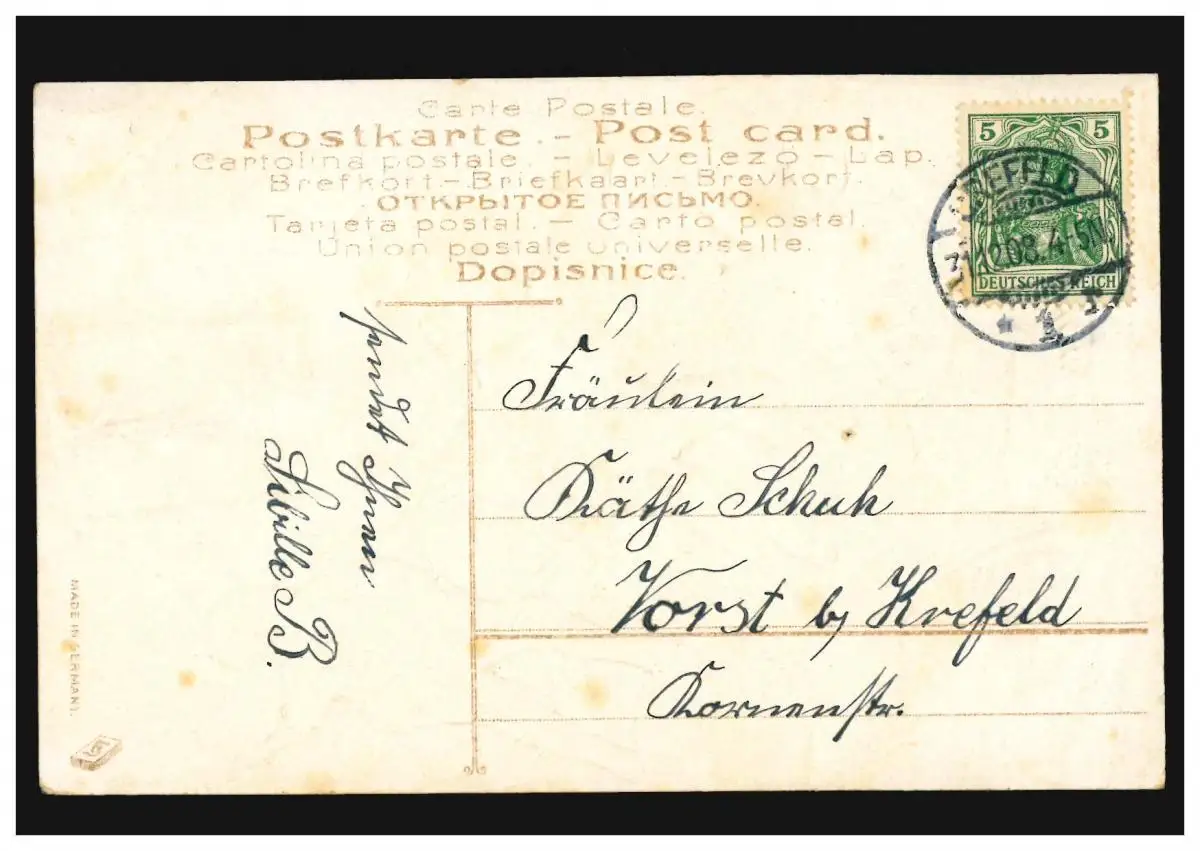 Carte Postale.
Postkarte - Post card.
Cartolina postale. - Levelező - Lap.
Brefkort - Briefkaart - Brevkort.
ОТКРЫТОЕ ПИСЬМО.
Tarjeta postal - Carto postal.
Union postale universelle.
Dopisnice.
5 5
DEUTSCHES REICH
CREFELD
12.08. 4-5N
* 1
sendet Ihnen
Sibille B.
Fräulein
Käthe Schuh
Vorst b/ Krefeld
MADE IN GERMANY.